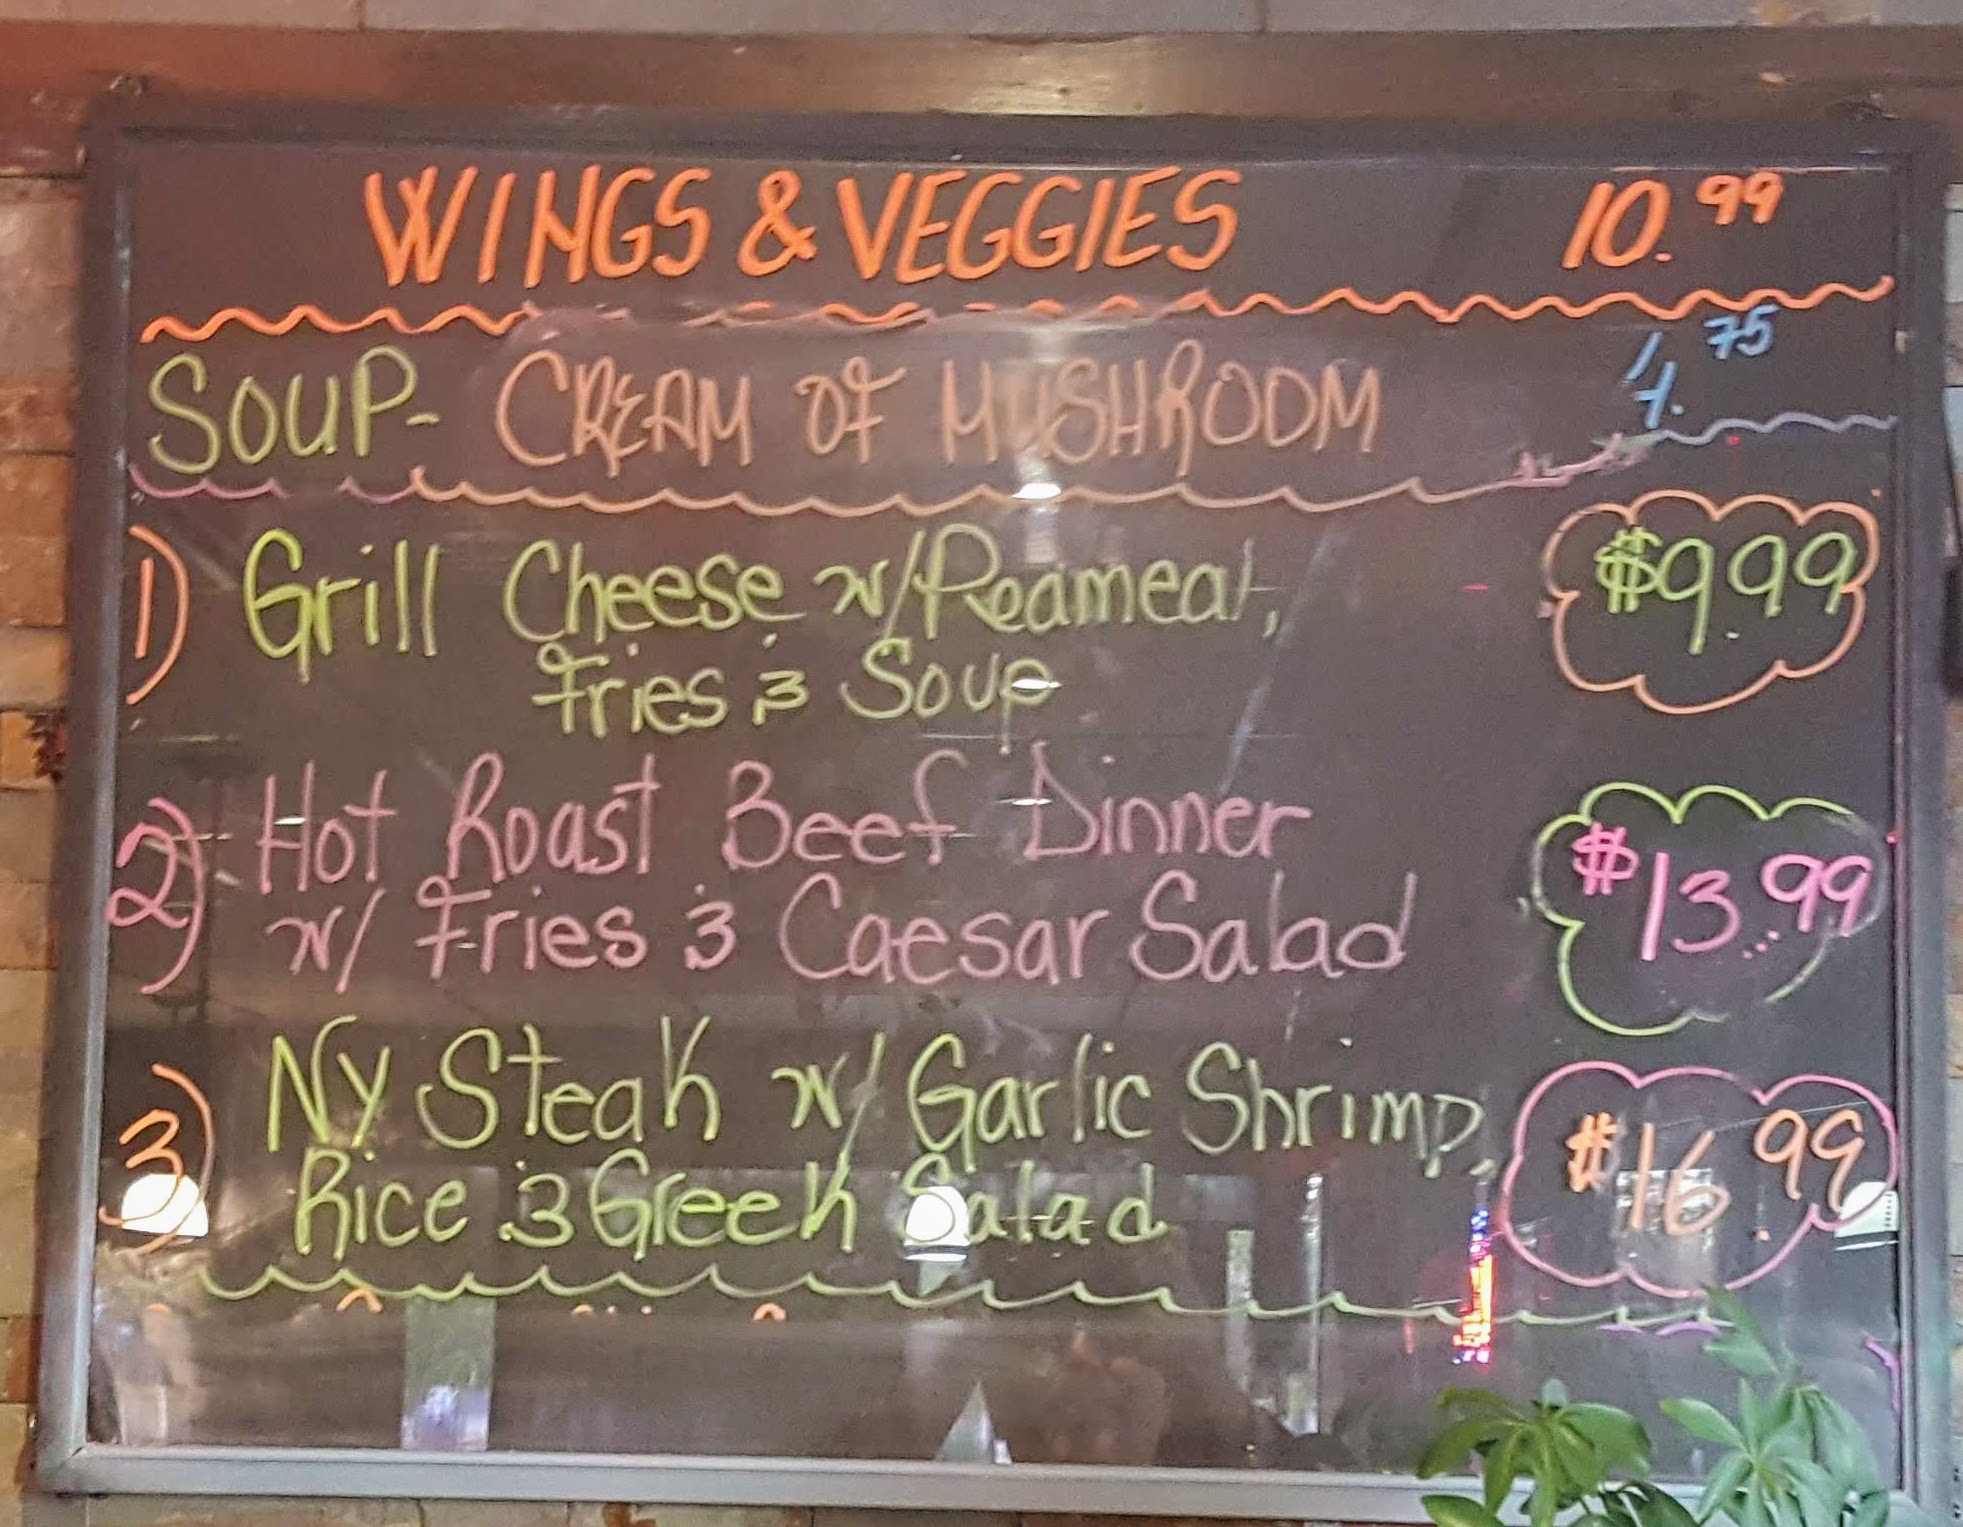 WINGS & VEGGIES 10.99
SOUP- CREAM OF MUSHROOM 4.75
1) Grill Cheese w/Peameal, $9.99
Fries & Soup
2) Hot Roast Beef Dinner $13.99
w/ Fries & Caesar Salad
3) Ny Steak w/ Garlic Shrimp, $16.99
Rice & Greek Salad